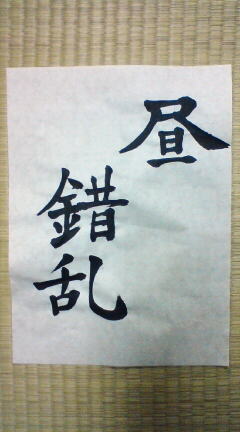 昼
錯乱